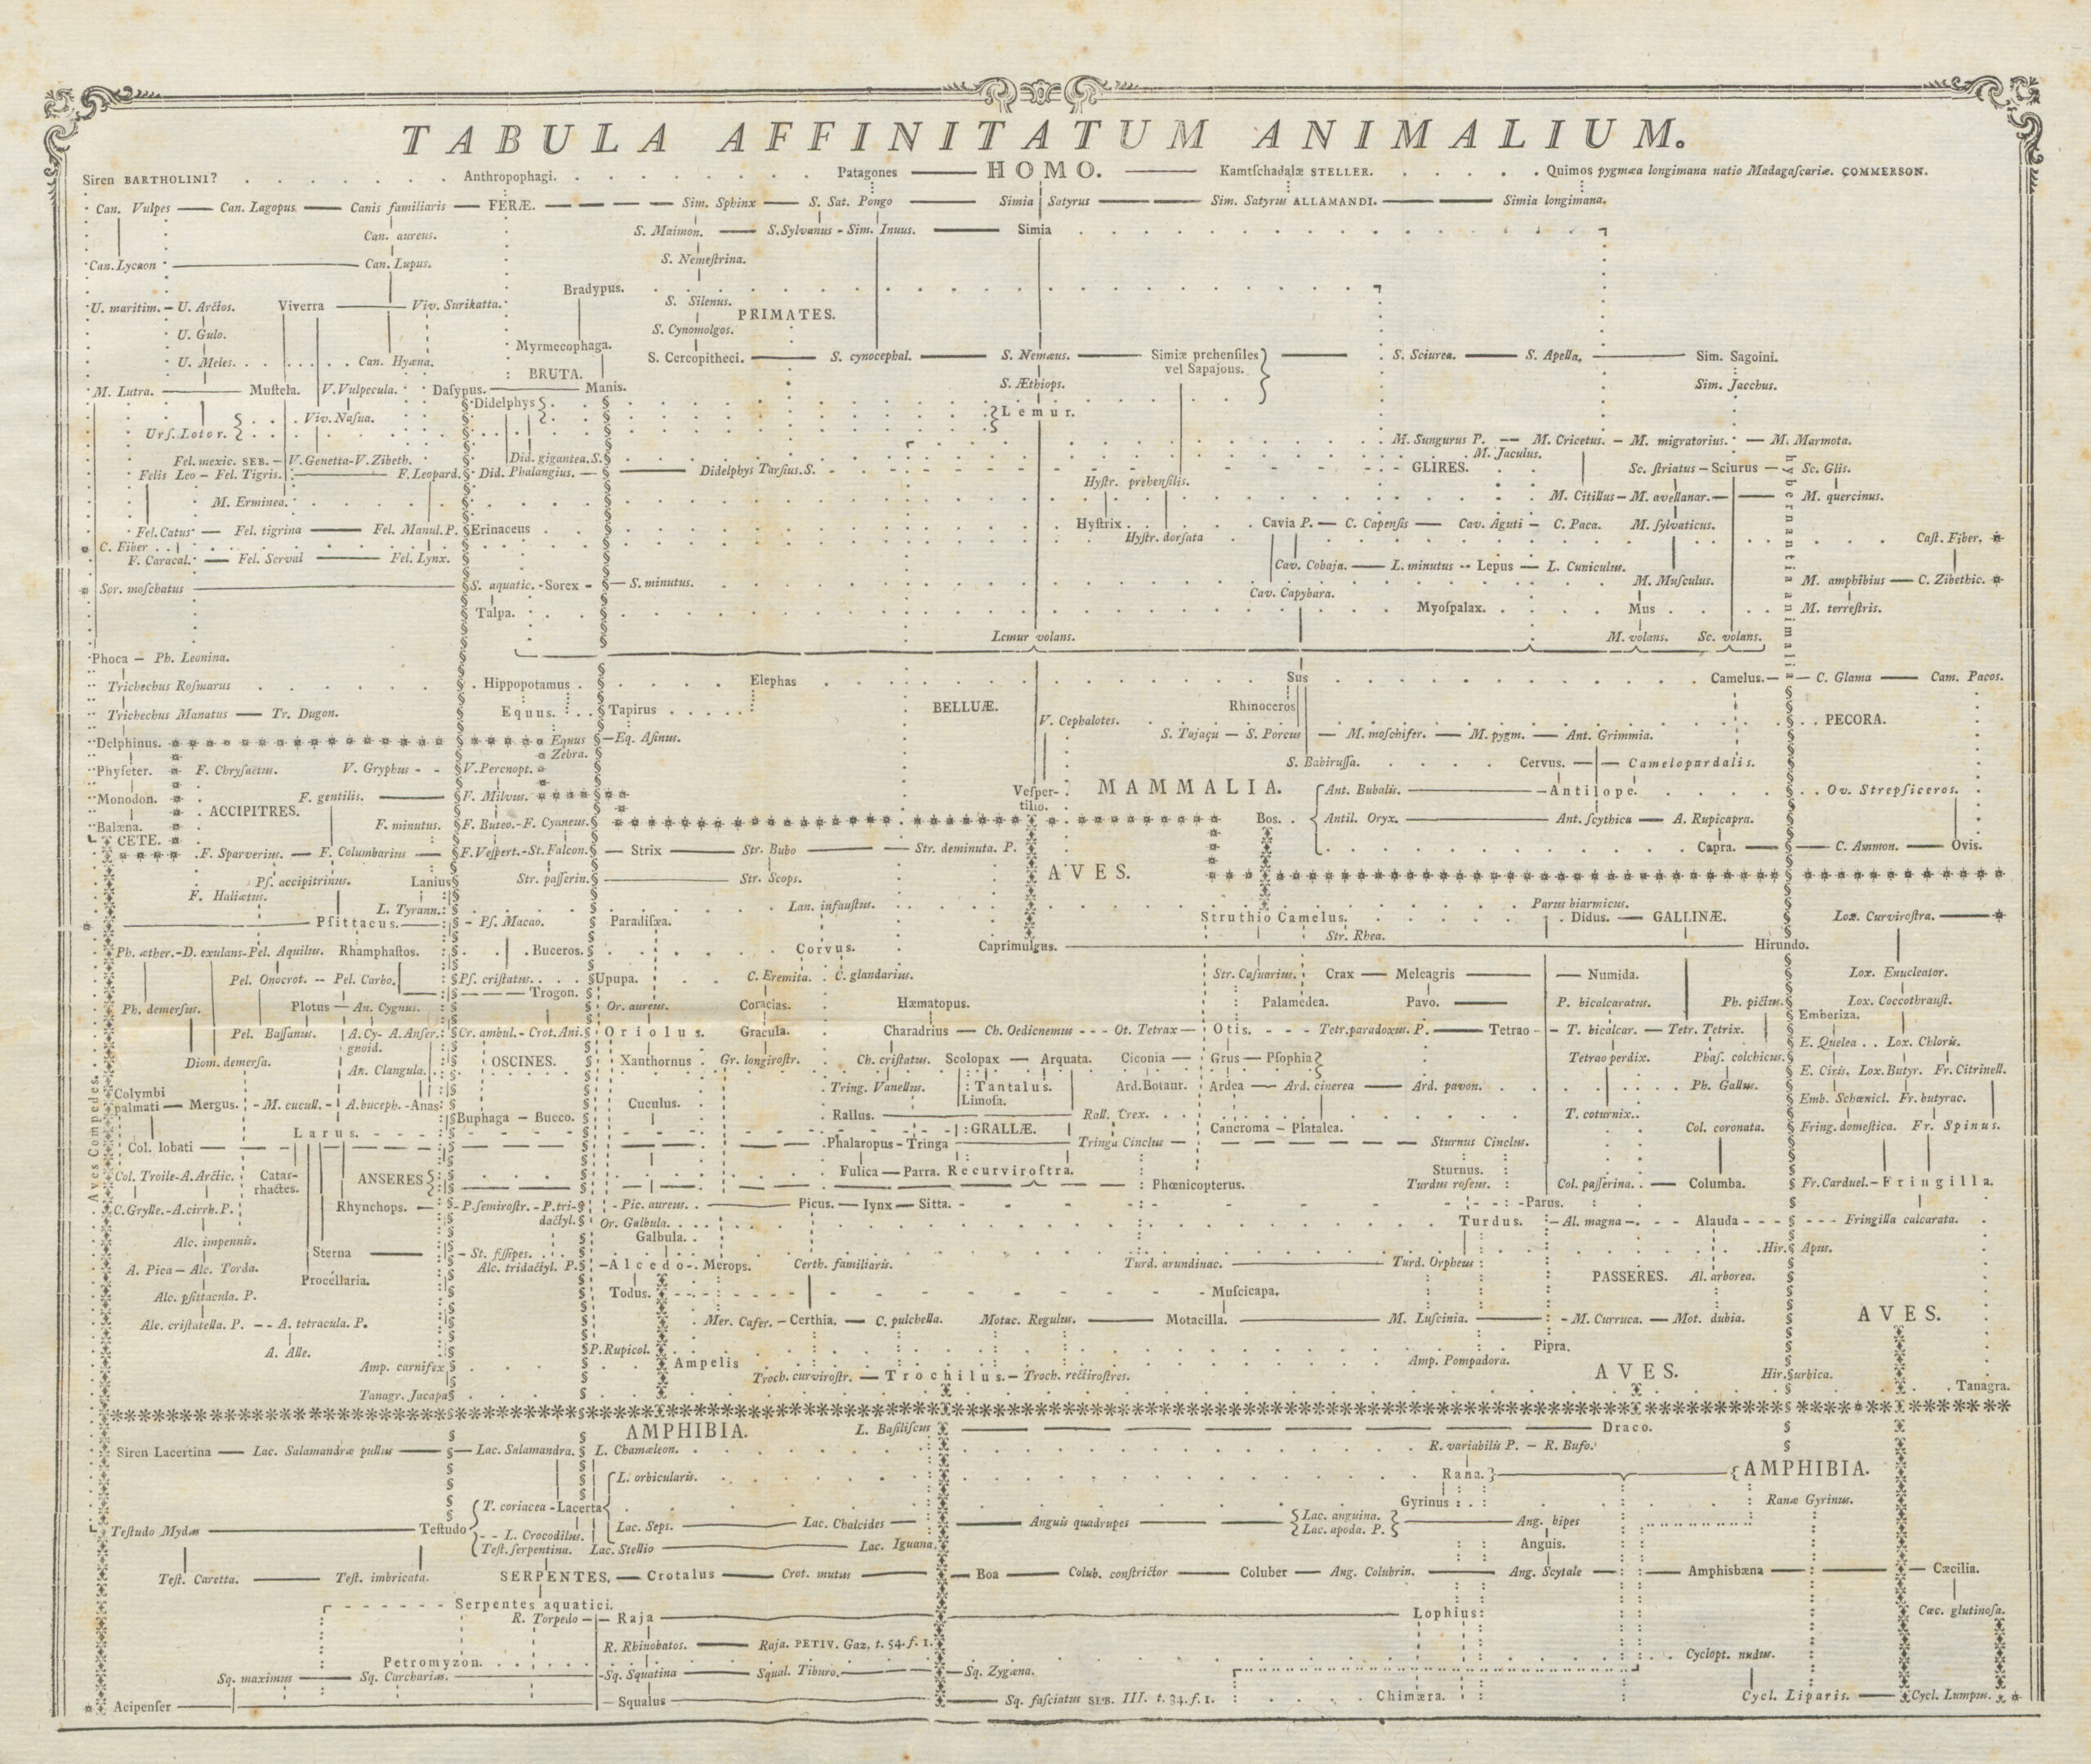 TABULA AFFINITATUM ANIMALIUM.
Siren BARTHOLINI? Anthropophagi. Patagones HOMO. Kamtſchadalæ STELLER. Quimos pygmæa longimana natio Madagaſcariæ. COMMERSON.
Can. Vulpes Can. Lagopus Canis familiaris FERÆ. Sim. Sphinx S. Sat. Pongo Simia Satyrus Sim. Satyrus ALLAMANDI. Simia longimana.
Can. aureus. S. Maimon. S. Sylvanus - Sim. Inuus. Simia
Can. Lycaon Can. Lupus. S. Nemeſtrina.
Bradypus.
U. maritim. - U. Arctos. Viverra Viv. Surikatta. S. Silenus.
PRIMATES.
U. Gulo. S. Cynomolgos.
Myrmecophaga.
U. Meles. Can. Hyæna. S. Cercopitheci. S. cynocephal. S. Nemæus. Simiæ prehenſiles S. Sciurea. S. Apella. Sim. Sagoini.
BRUTA. vel Sapajous.
M. Lutra. Muſtela. V. Vulpecula. Daſypus. Manis. S. Æthiops. Sim. Jacchus.
Didelphys
Viv. Naſua. Lemur.
Urſ. Lotor.
M. Sungurus P. M. Cricetus. M. migratorius. M. Marmota.
M. Jaculus.
Fel. mexic. SEB. - V. Genetta - V. Zibeth. Did. gigantea. S.
Felis Leo - Fel. Tigris. F. Leopard. Did. Phalangius. Didelphys Tarſius. S. GLIRES. Sc. ſtriatus - Sciurus Sc. Glis.
hybernantia animalia
Hyſtr. prehenſilis.
M. Erminea. M. Citillus - M. avellanar. M. quercinus.
Fel. Catus Fel. tigrina Fel. Manul. P. Erinaceus Hyſtrix Cavia P. - C. Capenſis Cav. Aguti - C. Paca. M. ſylvaticus.
C. Fiber Hyſtr. dorſata Caſt. Fiber.
F. Caracal. Fel. Serval Fel. Lynx. Cav. Cobaja. L. minutus -- Lepus - L. Cuniculus.
Sor. moſchatus S. aquatic. - Sorex S. minutus. M. Muſculus. M. amphibius - C. Zibethic.
Cav. Capybara.
Talpa. Myoſpalax. Mus M. terreſtris.
Lemur volans. M. volans. Sc. volans.
Phoca - Ph. Leonina.
Trichechus Roſmarus Hippopotamus Elephas Sus Camelus. C. Glama Cam. Pacos.
Trichechus Manatus Tr. Dugon. Equus. Tapirus BELLUÆ. Rhinoceros
V. Cephalotes. PECORA.
Delphinus. Equus Eq. Aſinus. S. Tajaçu - S. Porcus M. moſchifer. M. pygm. Ant. Grimmia.
Zebra.
Phyſeter. F. Chryſaetus. V. Gryphus V. Percnopt. S. Babiruſſa. Cervus. Camelopardalis.
Monodon. F. gentilis. F. Milvus. Veſpertilio. MAMMALIA. Ant. Bubalis. Antilope. Ov. Strepſiceros.
ACCIPITRES.
Balæna. F. minutus. F. Buteo. - F. Cyaneus. Bos. Antil. Oryx. Ant. ſcythica A. Rupicapra.
CETE.
F. Sparverius. F. Columbarius F. Veſpert. - St. Falcon. Strix Str. Bubo Str. deminuta. P. Capra. C. Ammon. Ovis.
Pſ. accipitrinus. Lanius Str. paſſerin. Str. Scops. AVES.
F. Haliætus.
L. Tyrann. Lan. infauſtus. Parus biarmicus.
Pſittacus. Pſ. Macao. Paradiſæa. Struthio Camelus. Didus. GALLINÆ. Lox. Curviroſtra.
Str. Rhea.
Ph. æther. - D. exulans - Pel. Aquilus. Rhamphaſtos. Buceros. Corvus. Caprimulgus. Hirundo.
Pel. Onocrot. -- Pel. Carbo. Pſ. criſtatus. Upupa. C. Eremita. C. glandarius. Str. Caſuarius. Crax Meleagris Numida. Lox. Enucleator.
Trogon.
Ph. demerſus. Plotus An. Cygnus. Or. aureus. Coracias. Hæmatopus. Palamedea. Pavo. P. bicalcaratus. Ph. pictus. Lox. Coccothrauſt.
Emberiza.
Pel. Baſſanus. A. Cygnoid. A. Anſer. Cr. ambul. - Crot. Ani. Oriolus. Gracula. Charadrius Ch. Oedicnemus Ot. Tetrax Otis. Tetr. paradoxus. P. Tetrao T. bicalcar. Tetr. Tetrix.
E. Quelea Lox. Chloris.
Diom. demerſa. An. Clangula. OSCINES. Xanthornus Gr. longiroſtr. Ch. criſtatus. Scolopax Arquata. Ciconia Grus Pſophia Tetrao perdix. Phaſ. colchicus.
E. Ciris. Lox. Butyr. Fr. Citrinell.
Colymbi palmati Mergus. M. cucull. A. buceph. - Anas Tring. Vanellus. Tantalus. Ard. Botaur. Ardea Ard. cinerea Ard. pavon. Ph. Gallus.
Cuculus. Limoſa. Emb. Schœnicl. Fr. butyrac.
Buphaga Bucco. Rallus. Rall. Crex. T. coturnix.
Larus. GRALLÆ. Cancroma - Platalea. Col. coronata. Fring. domeſtica. Fr. Spinus.
Col. lobati Phalaropus - Tringa Tringa Cinclus Sturnus Cinclus.
Aves Compedes.
Col. Troile - A. Arctic. Catarrhactes. ANSERES Fulica Parra. Recurviroſtra. Sturnus.
Phœnicopterus. Turdus roſeus. Col. paſſerina. Columba. Fr. Carduel. - Fringilla.
C. Grylle. - A. cirrh. P. Rhynchops. P. ſemiroſtr. - P. tridactyl. Pic. aureus. Picus. Iynx Sitta. Parus.
Or. Galbula. Turdus. Al. magna Alauda Fringilla calcarata.
Alc. impennis. Galbula.
Sterna St. fiſſipes. Hir. Apus.
A. Pica - Alc. Torda. Alc. tridactyl. P. Alcedo Merops. Certh. familiaris. Turd. arundinac. Turd. Orpheus
Procellaria. PASSERES. Al. arborea.
Alc. pſittacula. P. Todus. Muſcicapa.
Alc. criſtatella. P. -- A. tetracula. P. Mer. Cafer. - Certhia. C. pulchella. Motac. Regulus. Motacilla. M. Luſcinia. M. Curruca. Mot. dubia. AVES.
A. Alle. P. Rupicol. Pipra.
Amp. carnifex Ampelis Amp. Pompadora.
Troch. curviroſtr. Trochilus. Troch. rectiroſtres. AVES. Hir. urbica.
Tanagr. Jacapa Tanagra.
AMPHIBIA. L. Baſiliſcus Draco.
Siren Lacertina Lac. Salamandræ pullus Lac. Salamandra. L. Chamæleon. R. variabilis P. - R. Bufo.
L. orbicularis. Rana. AMPHIBIA.
T. coriacea - Lacerta Gyrinus Ranæ Gyrinus.
Teſtudo Mydas Teſtudo L. Crocodilus. Lac. Seps. Lac. Chalcides Anguis quadrupes Lac. anguina. Ang. bipes
Lac. apoda. P.
Teſt. ſerpentina. Lac. Stellio Lac. Iguana. Anguis.
Teſt. Caretta. Teſt. imbricata. SERPENTES. Crotalus Crot. mutus Boa Colub. conſtrictor Coluber Ang. Colubrin. Ang. Scytale Amphisbæna Cæcilia.
Serpentes aquatici.
R. Torpedo Raja Lophius Cæc. glutinoſa.
R. Rhinobatos. Raja. PETIV. Gaz. t. 54. f. 1.
Petromyzon. Cyclopt. nudus.
Sq. maximus Sq. Carcharias. Sq. Squatina Squal. Tiburo. Sq. Zygæna.
Acipenſer Squalus Sq. faſciatus SEB. III. t. 34. f. 1. Chimæra. Cycl. Liparis. Cycl. Lumpus.